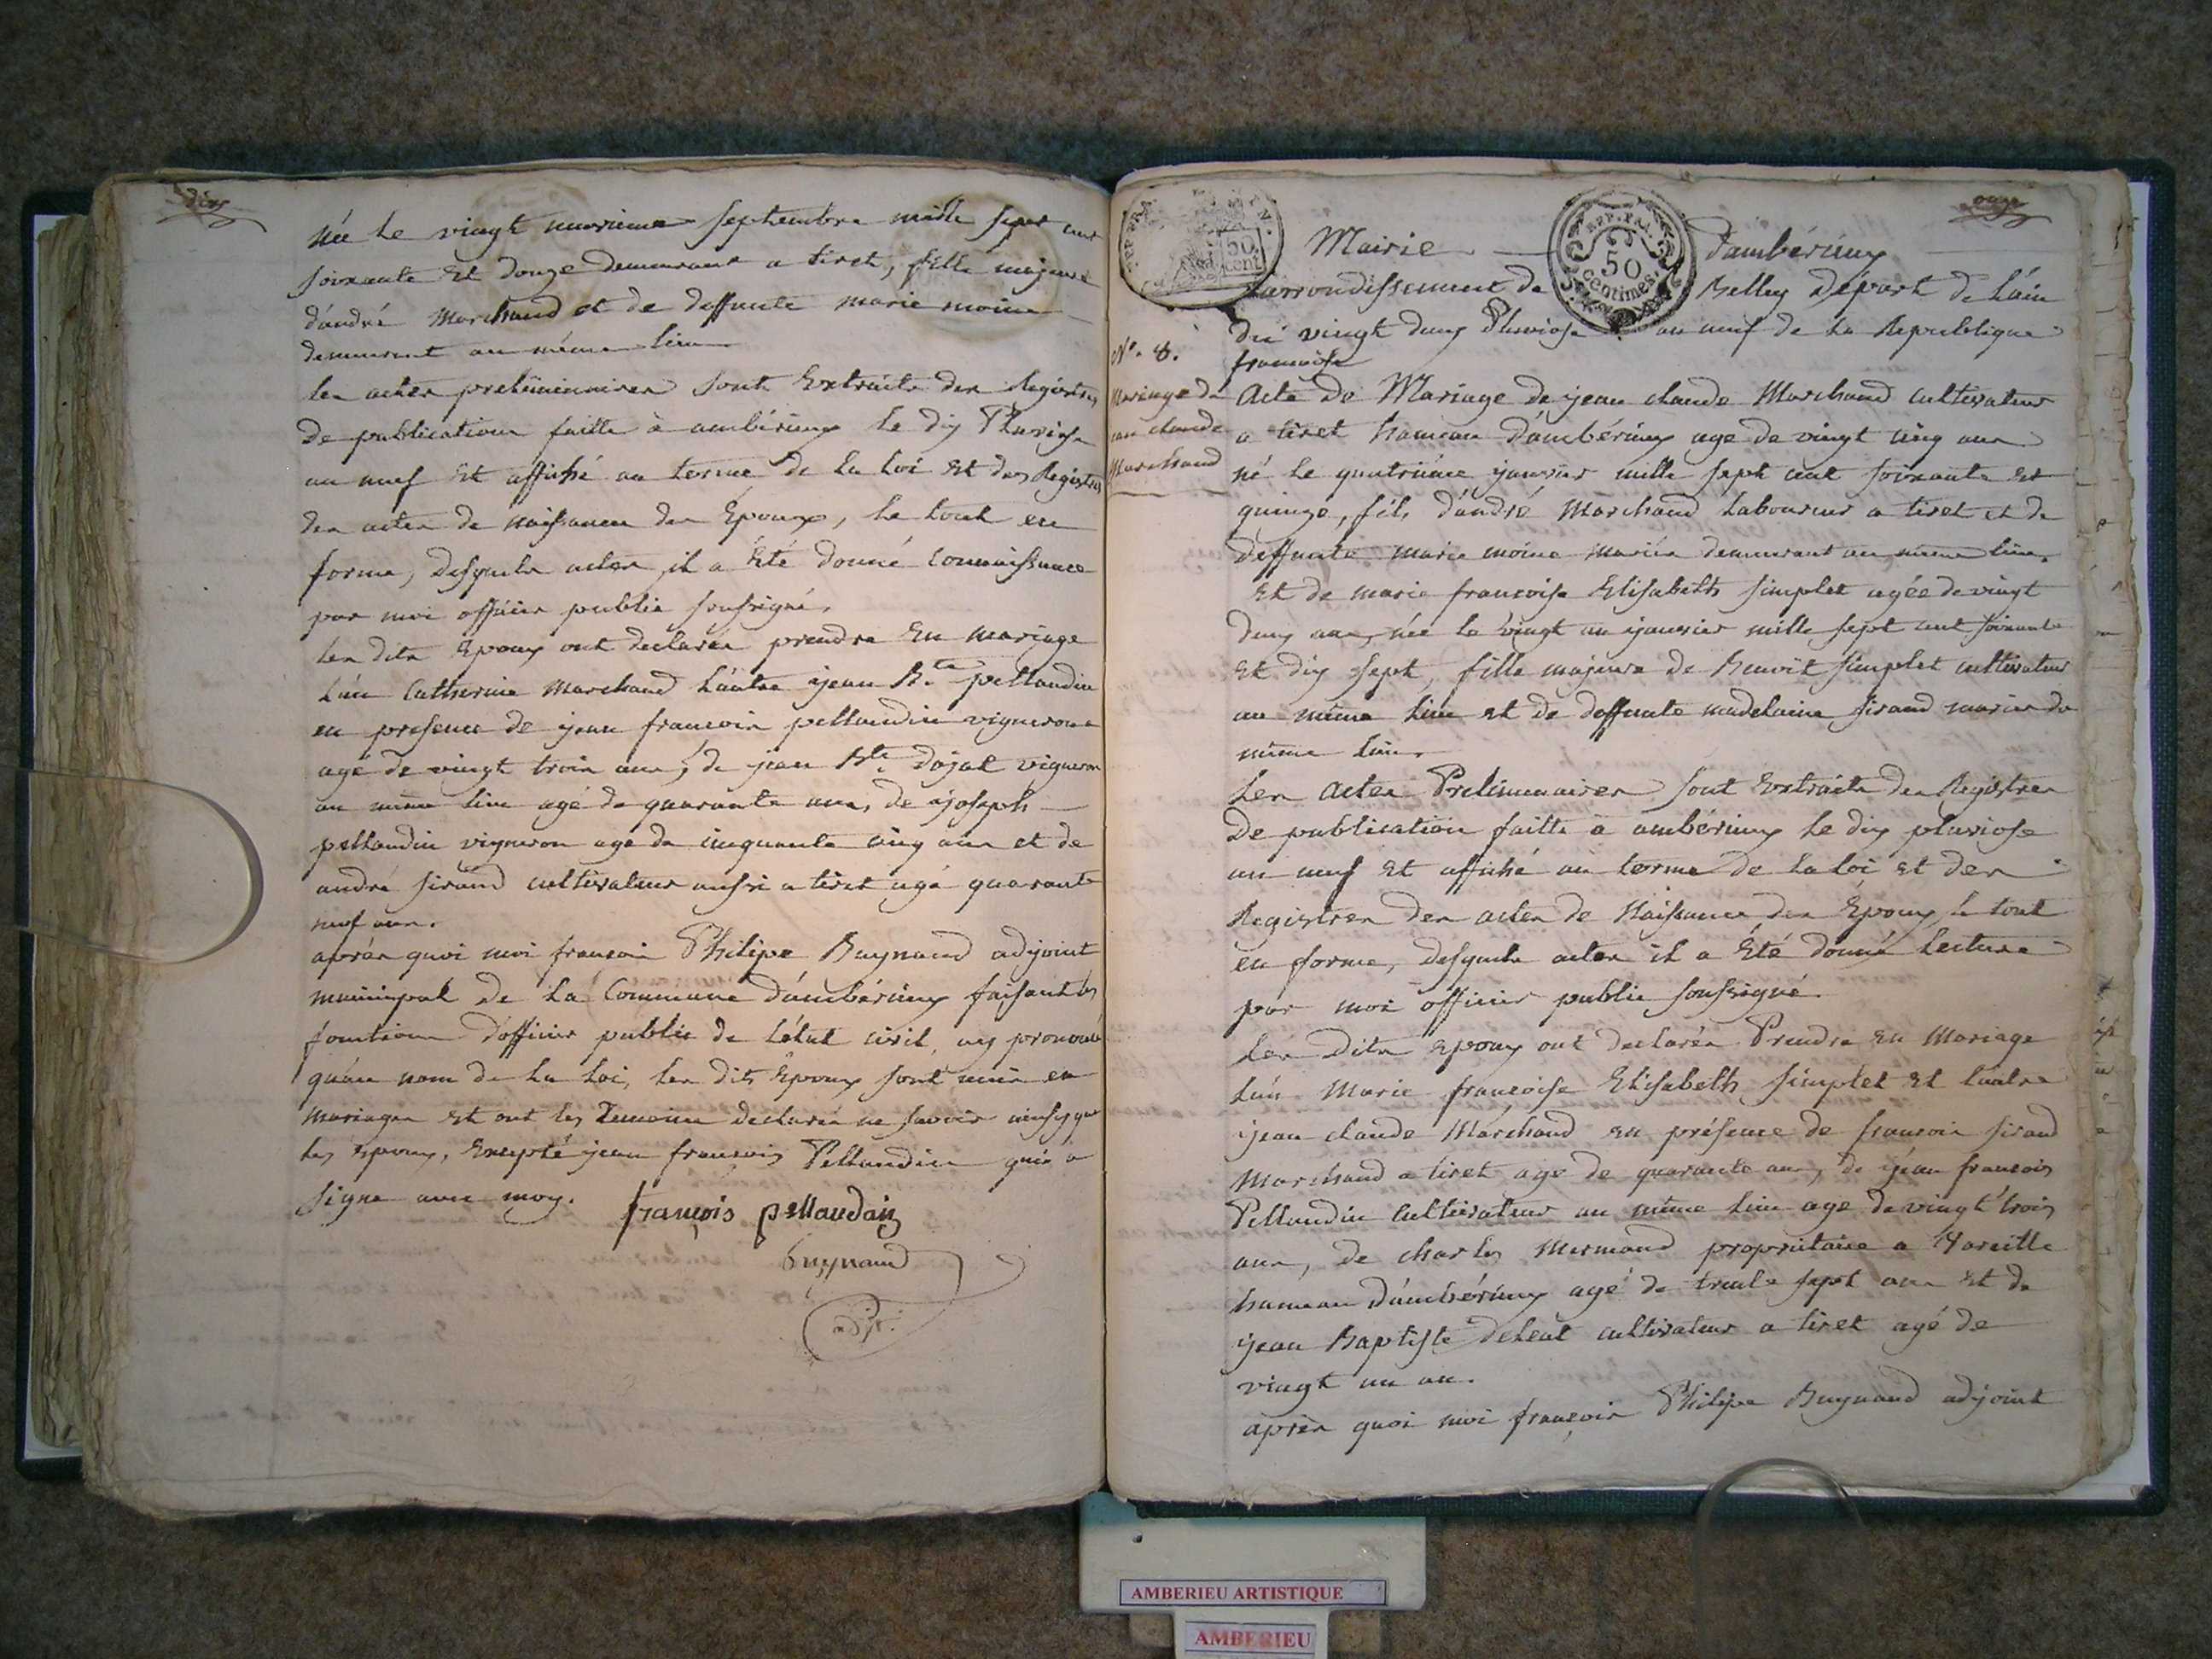 dix
née le vingt neuvieme septembre mille sept cent
soixante et douze demeurant a tiret, fille majeure
d'andré Marchand et de deffunte marie moine
demeurant au même lieu
les actes preliminaires sont Extraits des Registres
de publication faitte à ambérieux le dix Pluviose
an neuf et affiché au terme de la loi et des Registres
des actes de naissance des Époux, le tout en
forme, desquels actes, il a été donné connaissance
par moi officier public soussigné,
les dits Epoux ont declarés prendre En mariage
l'un Catherine Marchand l'autre jean Bte pellaudin
en presence de jean francois pellaudin vigneron
agé de vingt trois ans, de jean Bte dojat vigneron
au même lieu agé de quarante ans, de joseph
pellaudin vigneron agé de cinquante cinq ans et de
andré sirand cultivateur aussi a tiret agé quarante
neuf ans.
après quoi moi francois Philipe Buynand adjoint
municipal de la Commune d'ambérieux faisant les
fonctions d'officier public de l'état civil, ay prononcé
qu'au nom de la loi, les dits Époux sont unis en
mariages et ont les Temoins declarés ne savoir ainsy que
les Epoux, Excepté jean francois Pellaudin qui a
signe avec moy.
françois pellaudin
buynand
adjt.
onze
REP. FRA.
50
cent
REP. FRA.
50
centimes.
Mairie d'ambérieux
arrondissement de Belley Départ de l'ain
N°. 8.
Mariage de
jean claude
Marchand
du vingt deux Pluviose an neuf de la Republique
francoise
Acte de Mariage de jean claude Marchand cultivateur
a tiret hameau d'ambérieux age de vingt cinq ans
né le quatrième janvier mille sept cent soixante et
quinze, fils d'andré Marchand laboureur a tiret et de
deffunte marie moine mariés demeurant au même lieu.
Et de marie francoise Elisabeth simplet agée de vingt
deux ans, née le vingt un janvier mille sept cent soixante
et dix sept, fille majeure de Benoit simplet cultivateur
au même lieu et de deffunte madelaine sirand mariés du
même lieu.
Les actes Preliminaires sont Extraits des Registres
De publication faitte à ambérieux le dix pluviose
an neuf et affiché au terme de la loi et des
Registres des actes de Naissance des Époux, le tout
en forme, desquels actes il a été donné lecture
par moi officier public soussigné.
Les Dits Epoux ont declarés Prendre en Mariage
l'un Marie francoise Elisabeth simplet et l'autre
jean claude Marchand en présence de francois sirand
Marchand a tiret age de quarante ans, de jean francois
Pellaudin Cultivateur au même lieu age de vingt trois
ans, de charles Mermand propriétaire a Vareille
hameau d'ambérieux agé de trente sept ans et de
jean Baptiste cultivateur a tiret agé de
vingt un an.
après quoi moi françois Philipe Buynand adjoint
AMBERIEU ARTISTIQUE
AMBERIEU